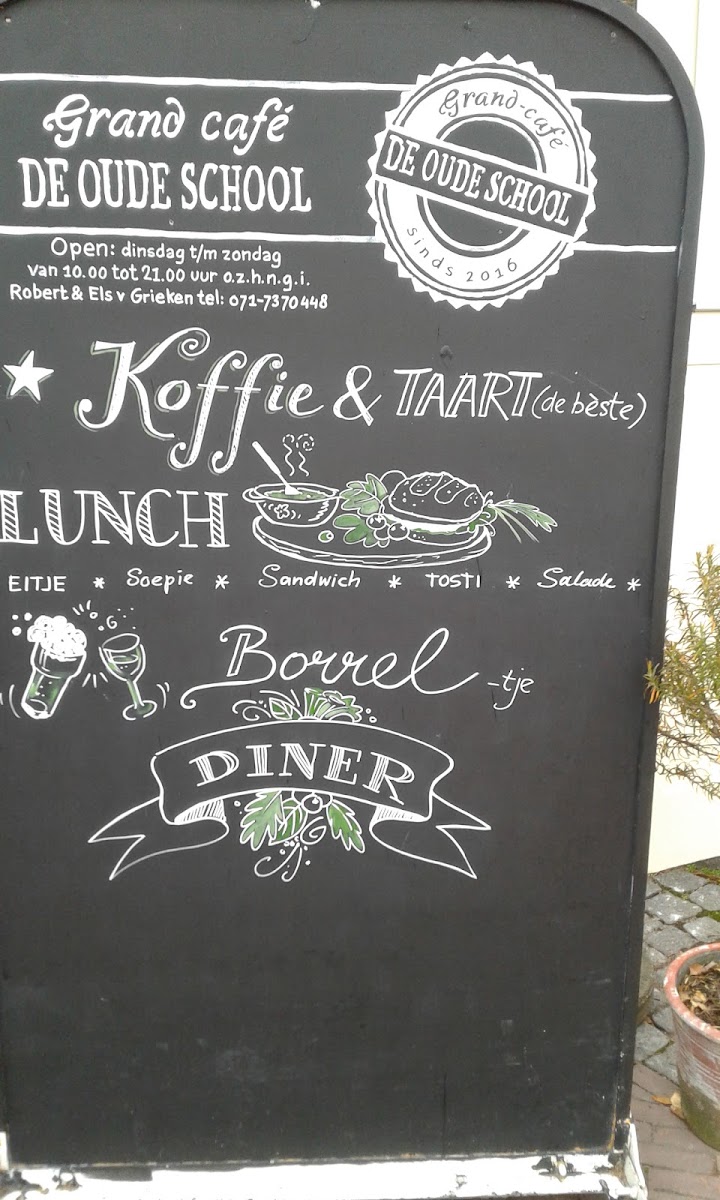 Grand café
DE OUDE SCHOOL
Grand-café
DE OUDE SCHOOL
sinds 2016
Open: dinsdag t/m zondag
van 10.00 tot 21.00 uur o.z.h.n.g.i.
Robert & Els v Grieken tel: 071-7370448
Koffie & TAART (de bèste)
LUNCH
EITJE * Soepie * Sandwich * TOSTI * Salade *
Borrel -tje
DINER